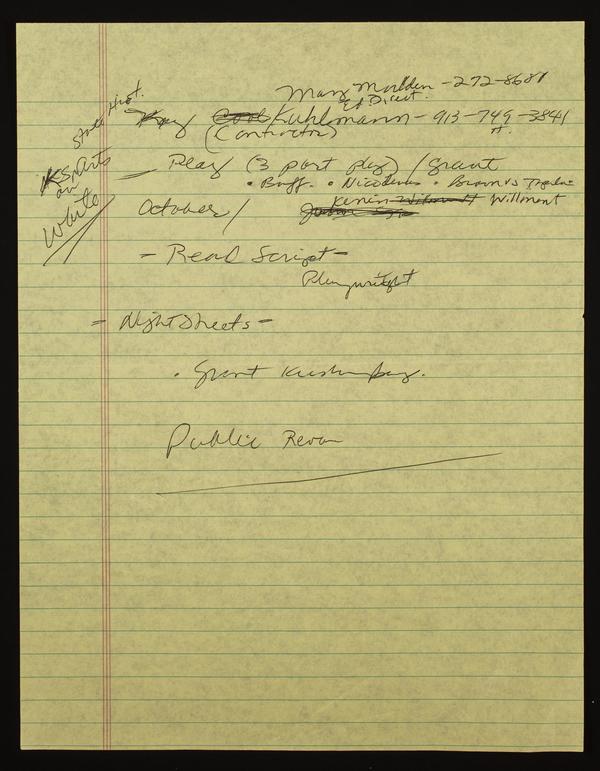 Mary Madden - 272-8681
Ed Direct.
State Hist.
Kay Kuhlmann - 913-749-3841
(Contractor)
KS Arts
on
White
Play (3 part play) / Grant
• Buff. • Nicodemus • Brown vs Topeka
October /
Kevin Willmott Willmont
- Read Script -
Playwright
- Night Streets -
• Grant
Public